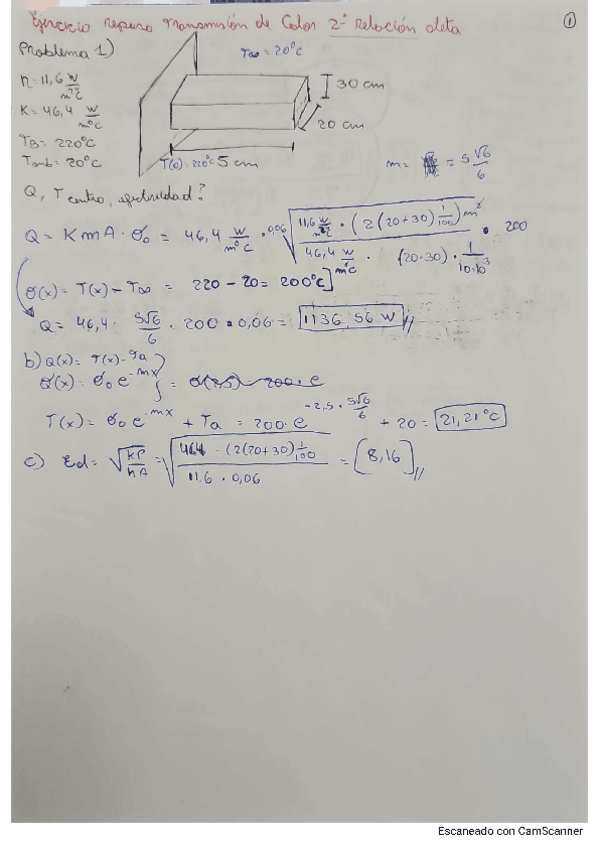 Ejercicio repaso Transmisión de Calor 2ª Relación aleta
1
Problema 1)
T∞ = 20°C
h = 11,6 W/m²°C
30 cm
K = 46,4 W/m°C
20 cm
TB = 220°C
Tamb = 20°C
T(0) = 220°C
5 cm
m = = 5√6/6
Q, T centro, efectividad?
Q = K m A · σ₀ = 46,4 W/m°C · 0,06 √(11,6 W/m²°C · (2(20+30) 1/100) m² / 46,4 W/m°C · (20·30) · 1/10·10³) · 200
σ(x) = T(x) - T∞ = 220 - 20 = 200°C]
Q = 46,4 · 5√6/6 · 200 · 0,06 = 1136,56 W //
b) Q(x) = T(x) - Ta
σ(x) = σ₀ e^-mx } = σ(2,5) = 200 · e
T(x) = σ₀ e^-mx + Ta = 200 · e^(-2,5 · 5√6/6) + 20 = 21,21°C
c) Ed = √(kP/hA) = √(46,4 · (2(20+30) 1/100) / 11,6 · 0,06) = [8,16] //
Escaneado con CamScanner